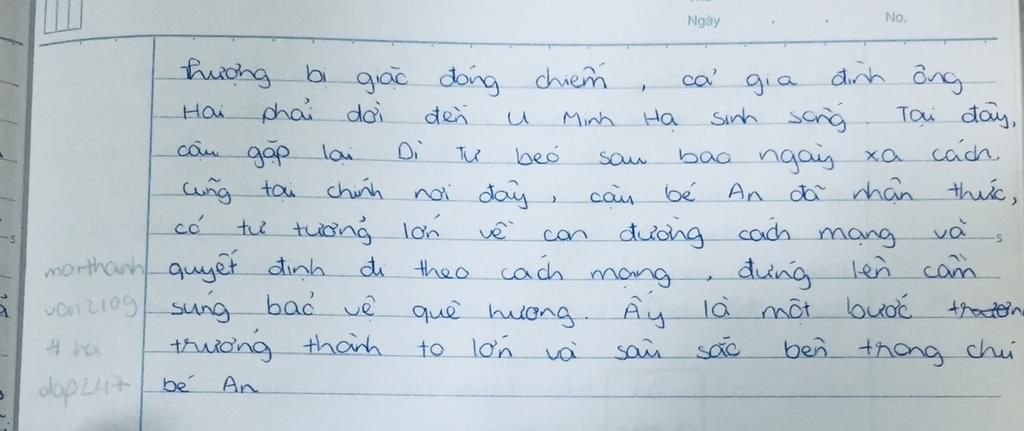 Ngày . . No.
thượng bị giặc đóng chiếm, cả gia đình ông
Hai phải dời đến U Minh Hạ sinh sống. Tại đây,
cậu gặp lại Dì Tư béo sau bao ngày xa cách.
Cũng tại chính nơi đây, cậu bé An đã nhận thức,
có tư tưởng lớn về con đường cách mạng và
quyết định đi theo cách mạng, đứng lên cầm
súng bảo vệ quê hương. Ấy là một bước
trưởng thành to lớn và sâu sắc bên trong chú
bé An
van2109